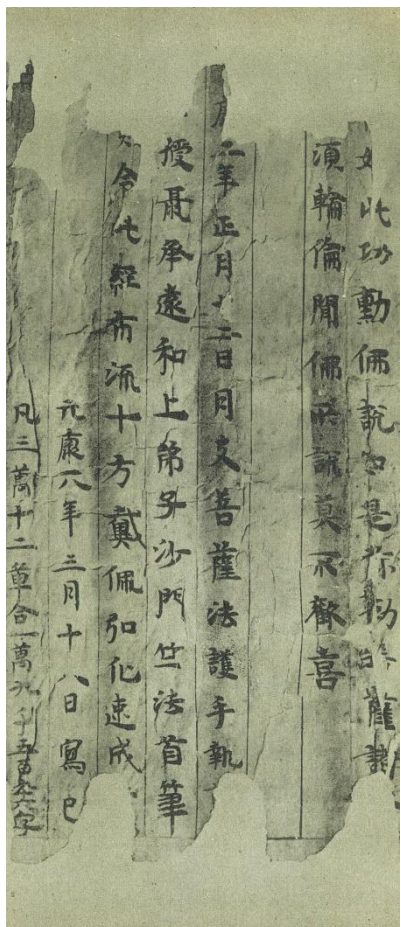 如此功勳佛說如是
須輪倫聞佛所說莫不歡喜
二年正月十二日月支菩薩法護手執
授聶承遠和上弟子沙門竺法首筆
令此經布流十方戴佩弘化速成
元康六年三月十八日寫已
凡三萬十二章合一萬九千五百九十六字